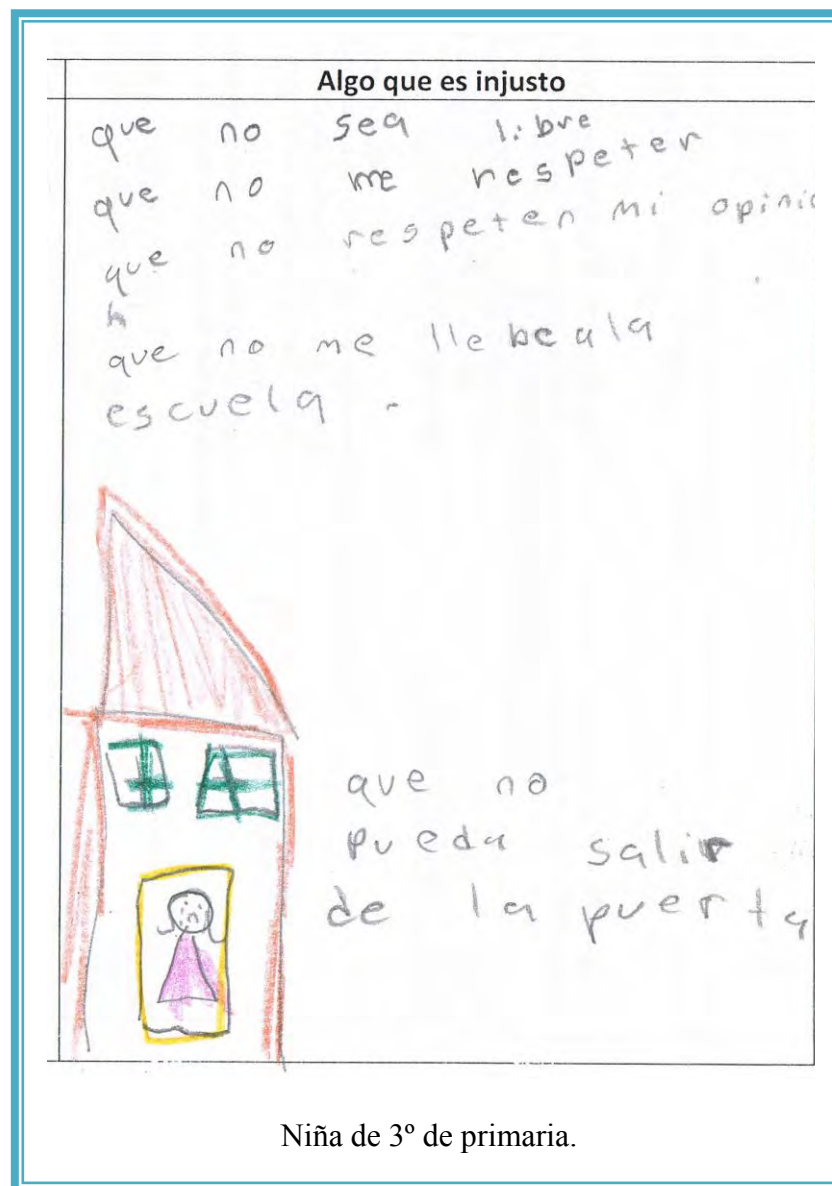 Algo que es injusto
que no sea libre
que no me respeter
que no respeten mi opinio
n
que no me llebe a la
escuela.
que no
pueda salir
de la puerta
Niña de 3º de primaria.